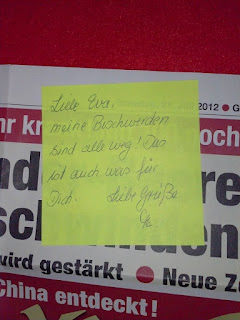 2012 ● G
hr kr
och
Liebe Eva,
meine Beschwerden
sind alle weg! Das
ist auch was für
Dich. Liebe Grüße
nd
re
sch
nden
wird gestärkt ● Neue Z
China entdeckt!